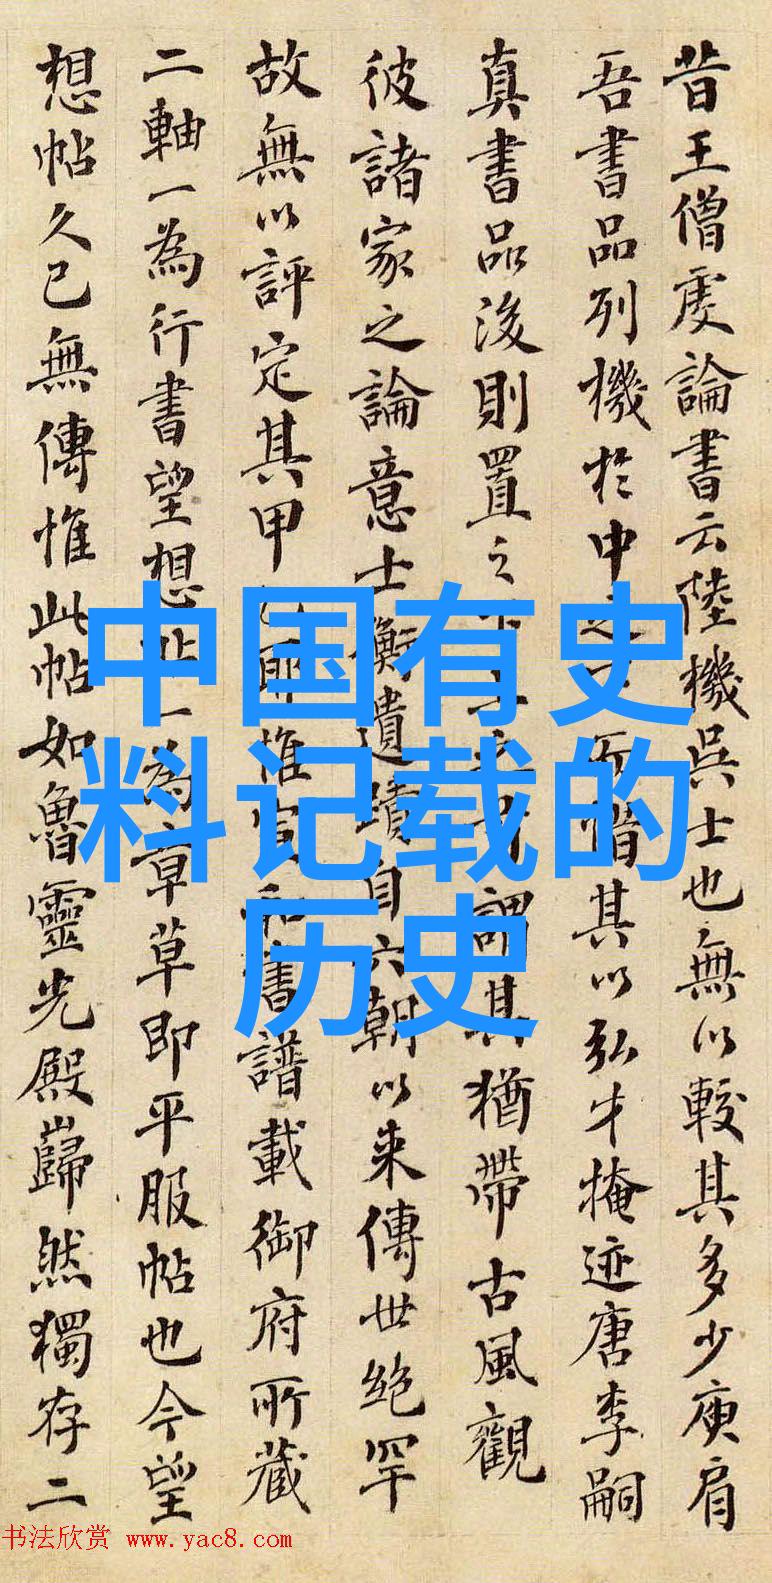 昔王僧虔論書云陸機吳士也無以較其多少庾肩
吾書品列機於中之下而惜其以弘才掩迹唐李嗣
真書品後則置之下上之謂其猶帶古風觀
彼諸家之論意士衡遺蹟自六朝以来傳世絶罕
故無以評定其甲乙耶惟宣和書譜載御府所藏
二軸一為行書望想帖一為章草即平服帖也今望
想帖久已無傳惟此帖如魯靈光殿巋然獨存二
中国有史
料记载的
历史
书法欣赏 www.yac8.com